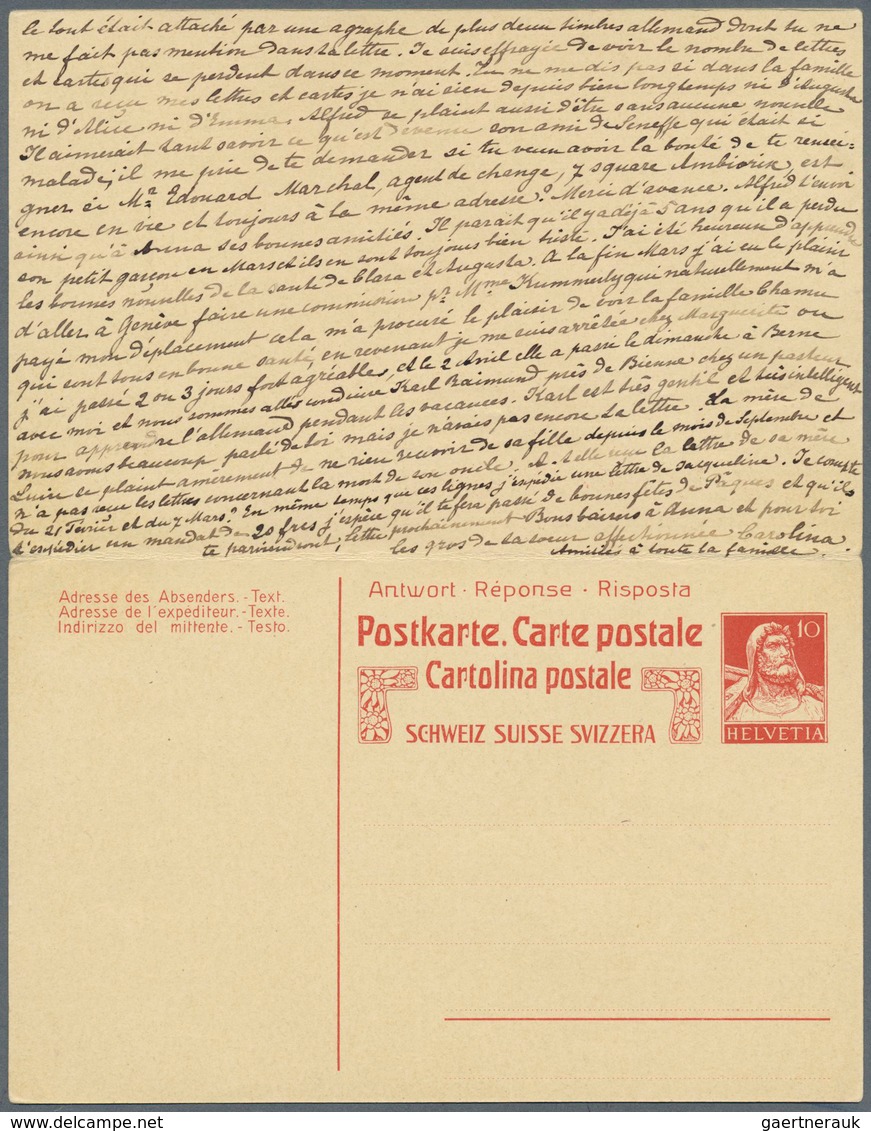 le tout était attaché par une agraphe de plus deux timbres allemand dont tu ne
me fait pas mention dans ta lettre. Je suis effrayée de voir le nombre de lettres
et cartes qui se perdent dans ce moment. Tu ne me dis pas si dans la famille
on a reçu mes lettres et cartes je n'ai rien depuis bien longtemps ni d'Augusta
ni d'Alice ni d'Emma. Alfred se plaint aussi d'être sans aucune nouvelle
Il aimerait tant savoir ce qu'est devenu son ami de Seneffe qui était si
malade; il me prie de te demander si tu veux avoir la bonté de te rensei=
gner si Mr. Edouard Marchal, agent de change, 7 square Ambiorix, est
encore en vie et toujours à la même adresse? Merci d'avance. Alfred t'envoi
ainsi qu'à Anna ses bonnes amitiés. Il parait qu'il y a déjà 5 ans qu'il a perdu
son petit garçon en Mars et ils en sont toujours bien triste. J'ai été heureux d'apprendre
les bonnes nouvelles de la santé de Clara et Augusta. A la fin Mars j'ai eu le plaisir
d'aller à Genève faire une commission pr. Mme Kummerly qui naturellement m'a
payé mon déplacement cela m'a procuré le plaisir de voir la famille Chamu
qui sont tous en bonne santé, en revenant je me suis arrêtée chez Marguerite ou
j'ai passé 2 ou 3 jours fort agréables, et le 2 Avril elle a passé le dimanche à Berne
avec moi et nous sommes allés conduire Karl Raimund près de Bienne chez un pasteur
pour apprendre l'allemand pendant les vacances. Karl est très gentil et très intelligent
nous avons beaucoup parlé de toi mais je n'avais pas encore ta lettre. La mère de
Luise se plaint amèrement de ne rien recevoir de sa fille depuis le mois de Septembre et
n'a pas reçu les lettres concernant la mort de son oncle. A-t-elle reçu la lettre de sa mère
du 21 Février et du 7 Mars? En même temps que ces lignes j'expédie une lettre de Jacqueline. Je compte
t'expédier un mandat de 20 frcs j'espère qu'il te fera passé de bonnes fêtes de Pâques et qu'ils
te parviendront, lettre prochainement Bons baisers à Anna et pour toi
les gros de ta soeur affectionnée Carolina
Amitiés à toute la famille.
Adresse des Absenders. - Text.
Adresse de l'expéditeur. - Texte.
Indirizzo del mittente. - Testo.
Antwort · Réponse · Risposta
Postkarte. Carte postale
Cartolina postale
SCHWEIZ SUISSE SVIZZERA
10
HELVETIA
gaertnerauk